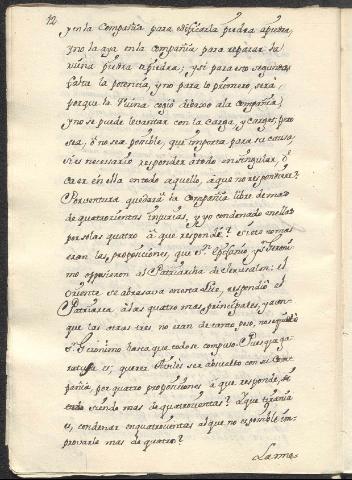 12
y en la Compañia para edificarla piedra apiedra,
y no la aya en la compañia para reparar su
ruina piedra apiedra; y si para esto segundo
falta la potencia, y no para lo primero, será
porque la Ruina cogió debaxo ala compañia,
y no se puede levantar con la carga, y cargos; pero
sea, ò no sea posible, que importa para su causa,
si es necesario responder àtodo en singular, ò
caer en ella en todo aquello, àque no respondiere?
Porventura quedará la compañia libre de mas
de quatrocientas injurias, y yo condenado en ellas
por solas quatro à que responde? Siete no mas
eran las proposiciones, que Sn. Epifanio y Sn. Geroni
mo opposieron al Patriarcha de Jerusalen: el
Oriente se abrasava no sta Lite, respondió el
Patriarca à las quatro mas principales, y aun
que las otras tres no eran de tanto peso, no se quietò
Sn. Geronimo hasta que todo se compuso. Pues que ga
es; querer Achiles ser absuelto con su Com
pañia por quatro proposiciones à que responde,
siendo mas de quatrocientas? Y que tirania
es, condenar en quatrocientas al que no es posible im
provarle mas de quatro?